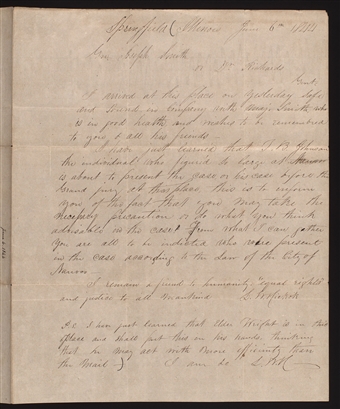 Springfield Illinois June 6th 1844
Gen. Joseph Smith
or Dr. Richards
Gent,
I arrived at this place on yesterday safe
and sound in company with Smith who
is in good health and wishes to be remembered
to you & all his friends
I have just learned that
the individual who figured so large at Nauvoo
is about to present the case or his case before the
Grand jury at this place, this is to inform
you of the fact that you may take the
necessary precaution or do what you think
advisable in the case from what I can gather
you are all to be indicted who were present
in the case according to the Law of the City of
Nauvoo
I remain a friend to humanity "equal rights
and justice to all Mankind
P.S. I have just learned that Elder Wright is in this
place and shall put this in his hands thinking
that he may act with more efficiency than
the Mail I am &c
June 6 1844